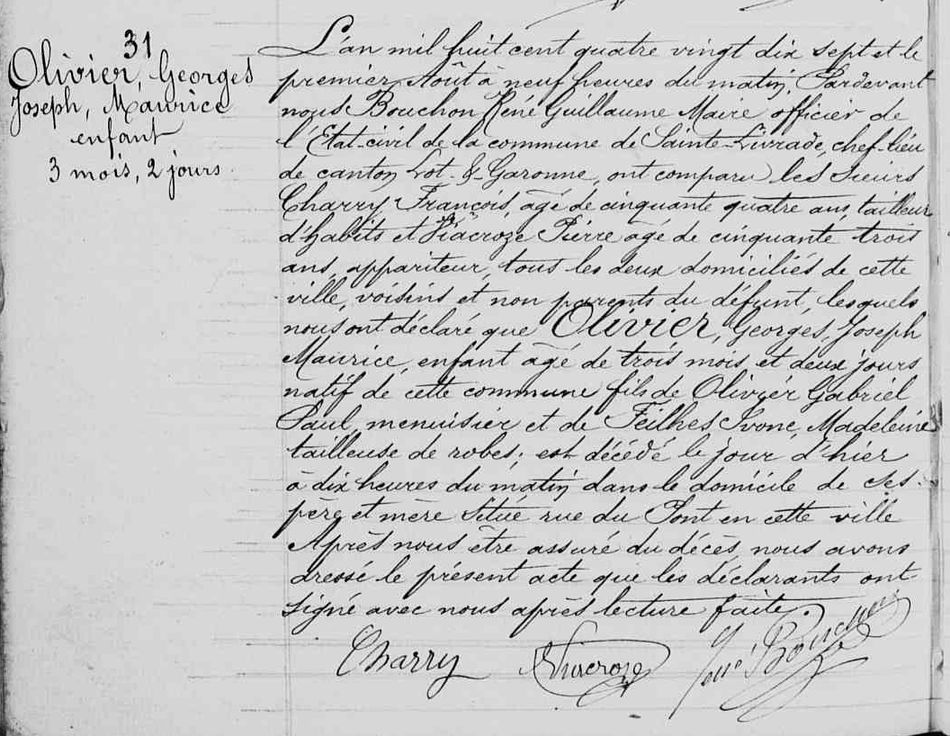 31
Olivier, Georges
Joseph, Maurice
enfant
3 mois, 2 jours
L'an mil huit cent quatre vingt dix sept et le
premier Août à neuf heures du matin, Pardevant
nous Bouchon René Guillaume Maire officier de
l'Etat-civil de la commune de Sainte-Livrade, chef-lieu
de canton Lot-&-Garonne, ont comparu les sieurs
Charry François, âgé de cinquante quatre ans, tailleur
d'habits et Viacroze Pierre âgé de cinquante trois
ans, appariteur, tous les deux domiciliés de cette
ville, voisins et non parents du défunt, lesquels
nous ont déclaré que Olivier, Georges, Joseph
Maurice, enfant âgé de trois mois et deux jours
natif de cette commune fils de Olivier Gabriel
Paul, menuisier et de Feilhes Ivone, Madeleine
tailleuse de robes; est décédé le jour d'hier
à dix heures du matin dans le domicile de ses
père et mère situé rue du Pont en cette ville
Après nous être assuré du décès, nous avons
dressé le présent acte que les déclarants ont
signé avec nous après lecture faite.
Charry Viacroze René Bouchon